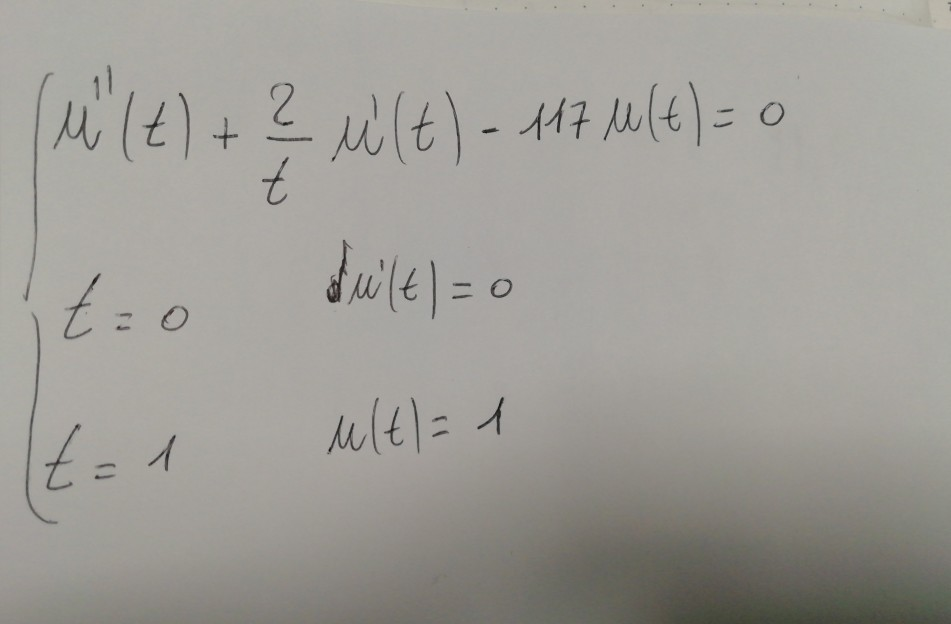 u''(t) + 2/t u'(t) - 117 u(t) = 0
t = 0 u'(t) = 0
t = 1 u(t) = 1